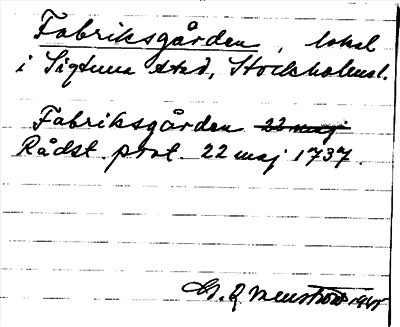 Fabriksgården, lokal
i Sigtuna stad, Stockholmsl.
Fabriksgården 22 maj
Rådst. prot. 22 maj 1737.